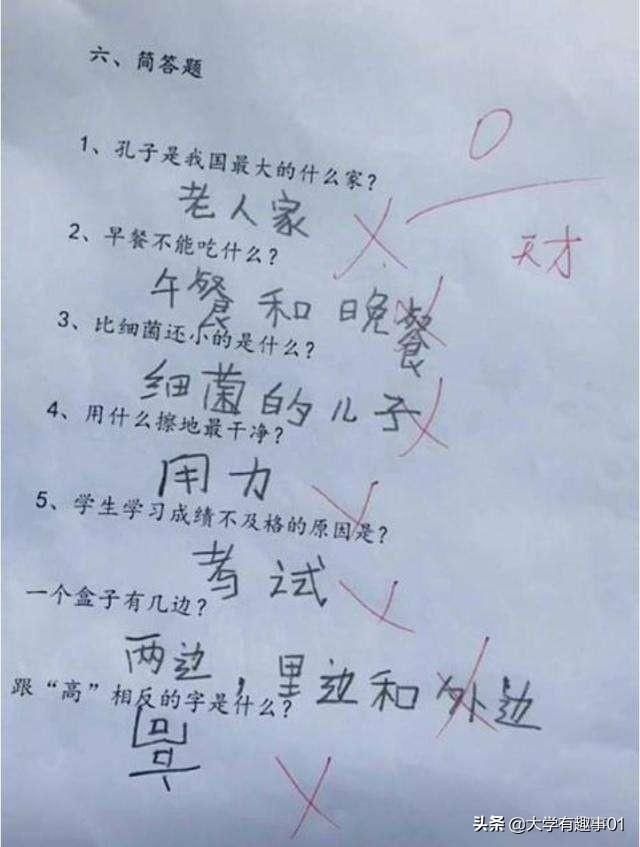 六、简答题
0
天才
1、孔子是我国最大的什么家？
老人家
2、早餐不能吃什么？
午餐和晚餐
3、比细菌还小的是什么？
细菌的儿子
4、用什么擦地最干净？
用力
5、学生学习成绩不及格的原因是？
考试
一个盒子有几边？
两边，里边和外边
跟“高”相反的字是什么？
头条 @大学有趣事01